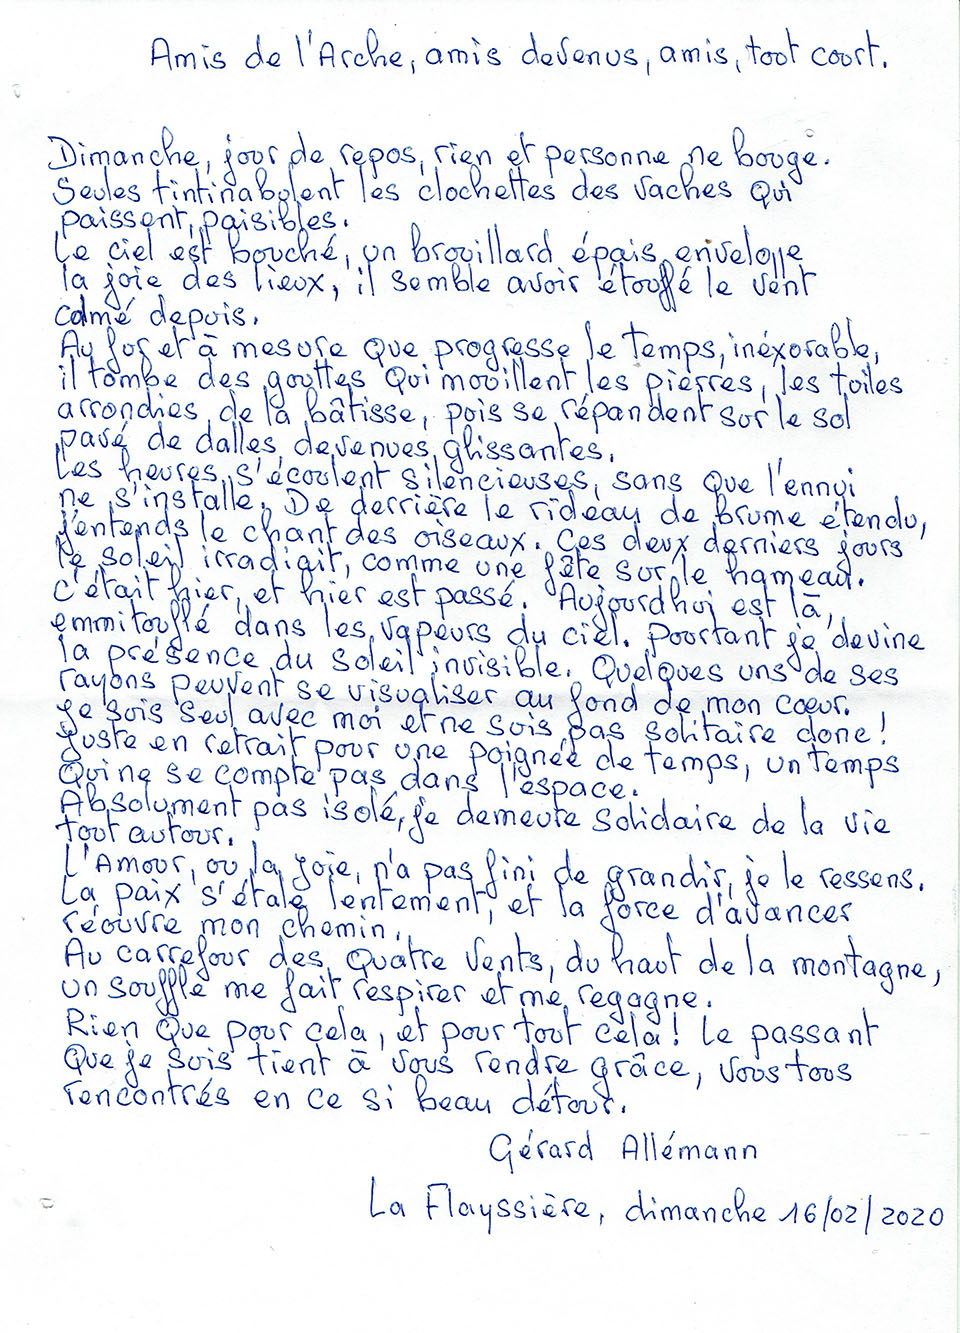 Amis de l'Arche, amis devenus, amis, tout court.
Dimanche, jour de repos, rien et personne ne bouge.
Seules tintinabulent les clochettes des vaches qui
paissent, paisibles.
Le ciel est bouché, un brouillard épais enveloppe
la joie des lieux, il semble avoir étouffé le vent
calmé depuis.
Au fur et à mesure que progresse le temps, inéxorable,
il tombe des gouttes qui mouillent les pierres, les tuiles
arrondies de la bâtisse, puis se répandent sur le sol
pavé de dalles devenues glissantes.
Les heures s'écoulent silencieuses, sans que l'ennui
ne s'installe. De derrière le rideau de brume étendu,
j'entends le chant des oiseaux. Ces deux derniers jours
le soleil irradiait, comme une fête sur le hameau.
C'était hier, et hier est passé. Aujourdhui est là,
emmitouflé dans les vapeurs du ciel. Pourtant je devine
la présence du soleil invisible. Quelques uns de ses
rayons peuvent se visualiser au fond de mon cœur.
Je suis seul avec moi et ne suis pas solitaire donc !
Juste en retrait pour une poignée de temps, un temps
Qui ne se compte pas dans l'espace.
Absolument pas isolé, je demeure solidaire de la vie
tout autour.
L'Amour, ou la joie, n'a pas fini de grandir, je le ressens.
La paix s'étale lentement, et la force d'avancer
réouvre mon chemin.
Au carrefour des quatre vents, du haut de la montagne,
un souffle me fait respirer et me regagne.
Rien que pour cela, et pour tout cela ! Le passant
que je suis tient à vous rendre grâce, vous tous
rencontrés en ce si beau détour.
Gérard Allémann
La Flayssière, dimanche 16/02/2020